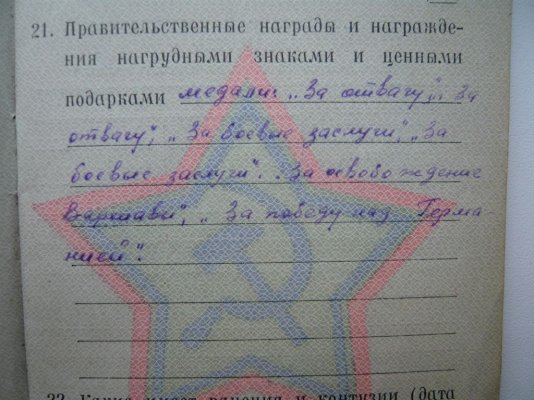 21. Правительственные награды и награжде-
ния нагрудными знаками и ценными
подарками медали: „За отвагу", „За
отвагу", „За боевые заслуги", „За
боевые заслуги". „За освобождение
Варшавы", „За победу над Герма-
нией".
22. Какие имеет ранения и контузии (дата